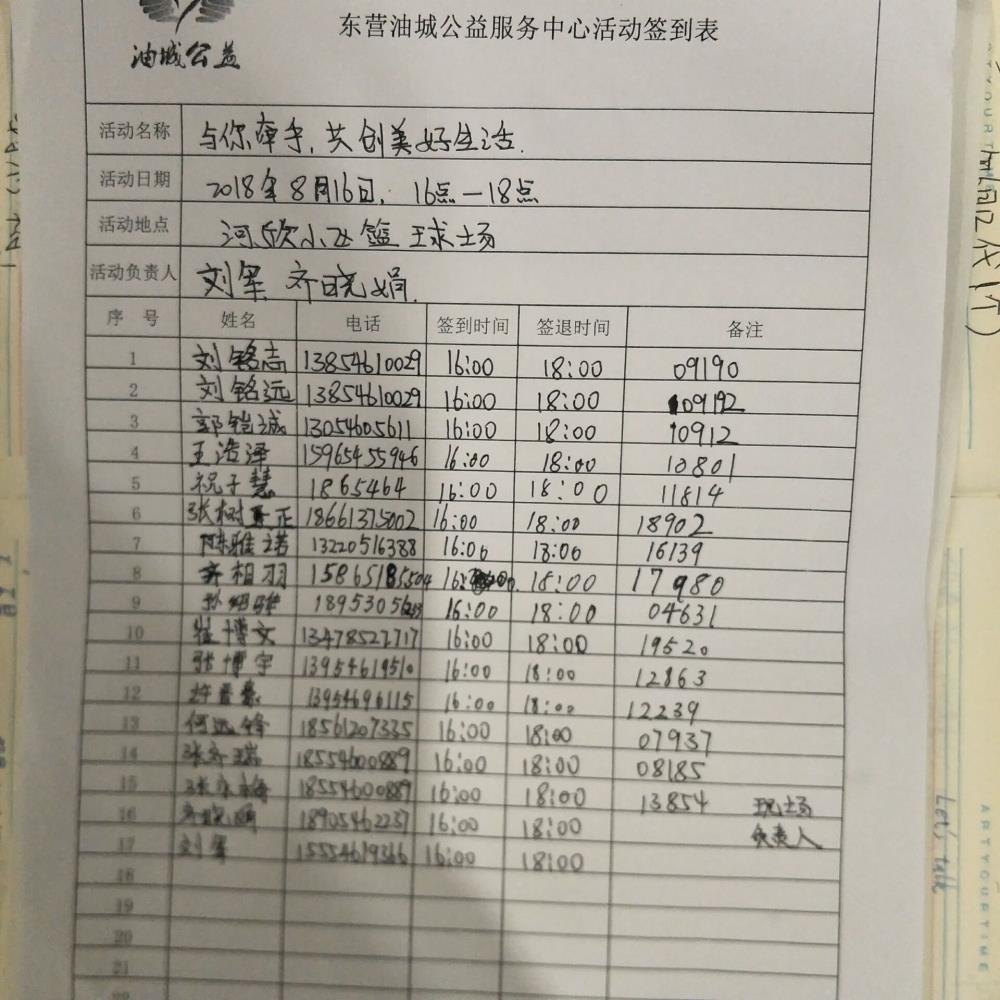 东营油城公益服务中心活动签到表
油城公益
活动名称 与你牵手,共创美好生活.
活动日期 2018年8月16日, 16点—18点
活动地点 河欣小区篮球场
活动负责人 刘军 齐晓娟
序号 姓名 电话 签到时间 签退时间 备注
1 刘铭志 13854610029 16:00 18:00 09190
2 刘铭远 13854610029 16:00 18:00 09192
3 郭铠诚 13054605611 16:00 18:00 10912
4 王浩泽 15965455946 16:00 18:00 10801
5 祝子慧 1865464 16:00 18:00 11814
6 张树正 18661375002 16:00 18:00 18902
7 陈雅诺 13220516388 16:00 18:00 16139
8 齐相羽 15865185504 16:00 18:00 17980
9 18953056 16:00 18:00 04631
10 崔博文 13478527717 16:00 18:00 19520
11 张博宇 13954619510 16:00 18:00 12863
12 13954696115 16:00 18:00 12239
13 何远锋 18561207335 16:00 18:00 07937
14 张齐瑞 18554600889 16:00 18:00 08185
15 18554600889 16:00 18:00 13854 现场
16 齐晓娟 18905462237 16:00 18:00 负责人
17 刘军 15554619366 16:00 18:00
18
19
20
21
22
Let's talk
ARTYOURTIME